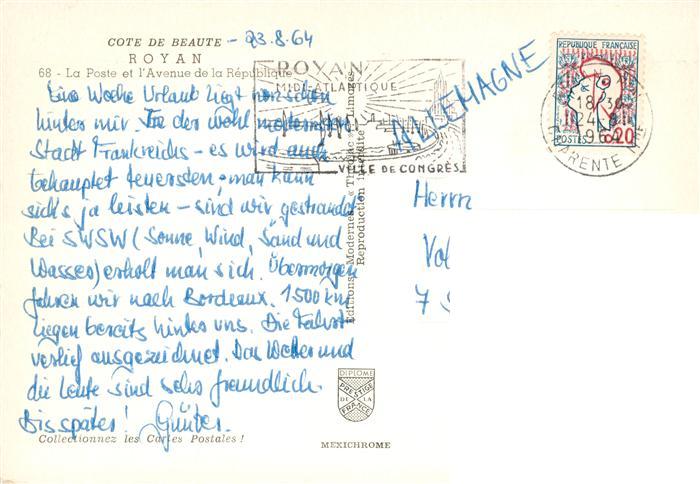 COTE DE BEAUTE - 23.8.64
ROYAN
68 - La Poste et l'Avenue de la République
Eine Woche Urlaub liegt nun schon
hinter mir. In der wohl modernsten
Stadt Frankreichs - es wird auch
behauptet teuersten; man kann
sich's ja leisten - sind wir gestrandet
Bei SWSW (Sonne, Wind, Sand und
Wasser) erholt man sich. Übermorgen
fahren wir nach Bordeaux. 1500 km
liegen bereits hinter uns. Die Fahrt
verlief ausgezeichnet. Das Wetter und
die Leute sind sehr freundlich.
Bis später! Günter.
Collectionnez les Cartes Postales!
Editions Modernes « Théojac »
Reproduction interdite
ROYAN
MIDI ATLANTIQUE
VILLE DE CONGRÈS
DIPLOME
PRESTIGE
DE LA
FRANCE
MEXICHROME
ALLEMAGNE
REPUBLIQUE FRANÇAISE
POSTES 0,20
18 H 30
24-8
196
CHARENTE
Herrn
Vol
7